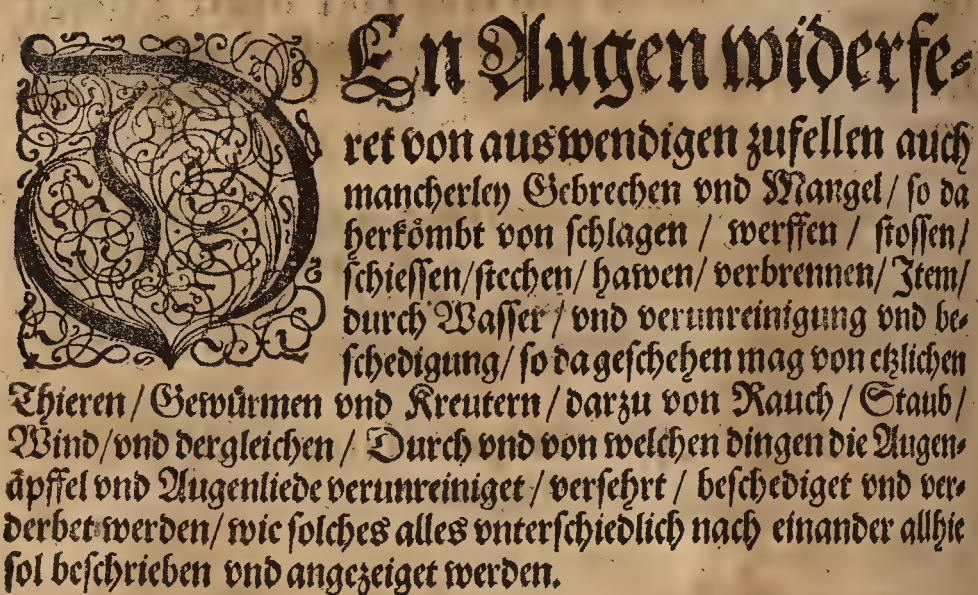 DEn Augen widerfe⸗
ret von auswendigen zufellen auch
mancherley Gebrechen vnd Mangel / so da
herkömbt von schlagen / werffen / stossen /
schiessen / stechen / hawen / verbrennen / Item /
durch Wasser / vnd verunreinigung vnd be⸗
schedigung / so da geschehen mag von etzlichen
Thieren / Gewürmen vnd Kreutern / darzu von Rauch / Staub /
Wind / vnd dergleichen / Durch vnd von welchen dingen die Augen⸗
äpffel vnd Augenliede verunreiniget / versehrt / beschediget vnd ver⸗
derbet werden / wie solches alles vnterschiedlich nach einander allhie
sol beschrieben vnd angezeiget werden.